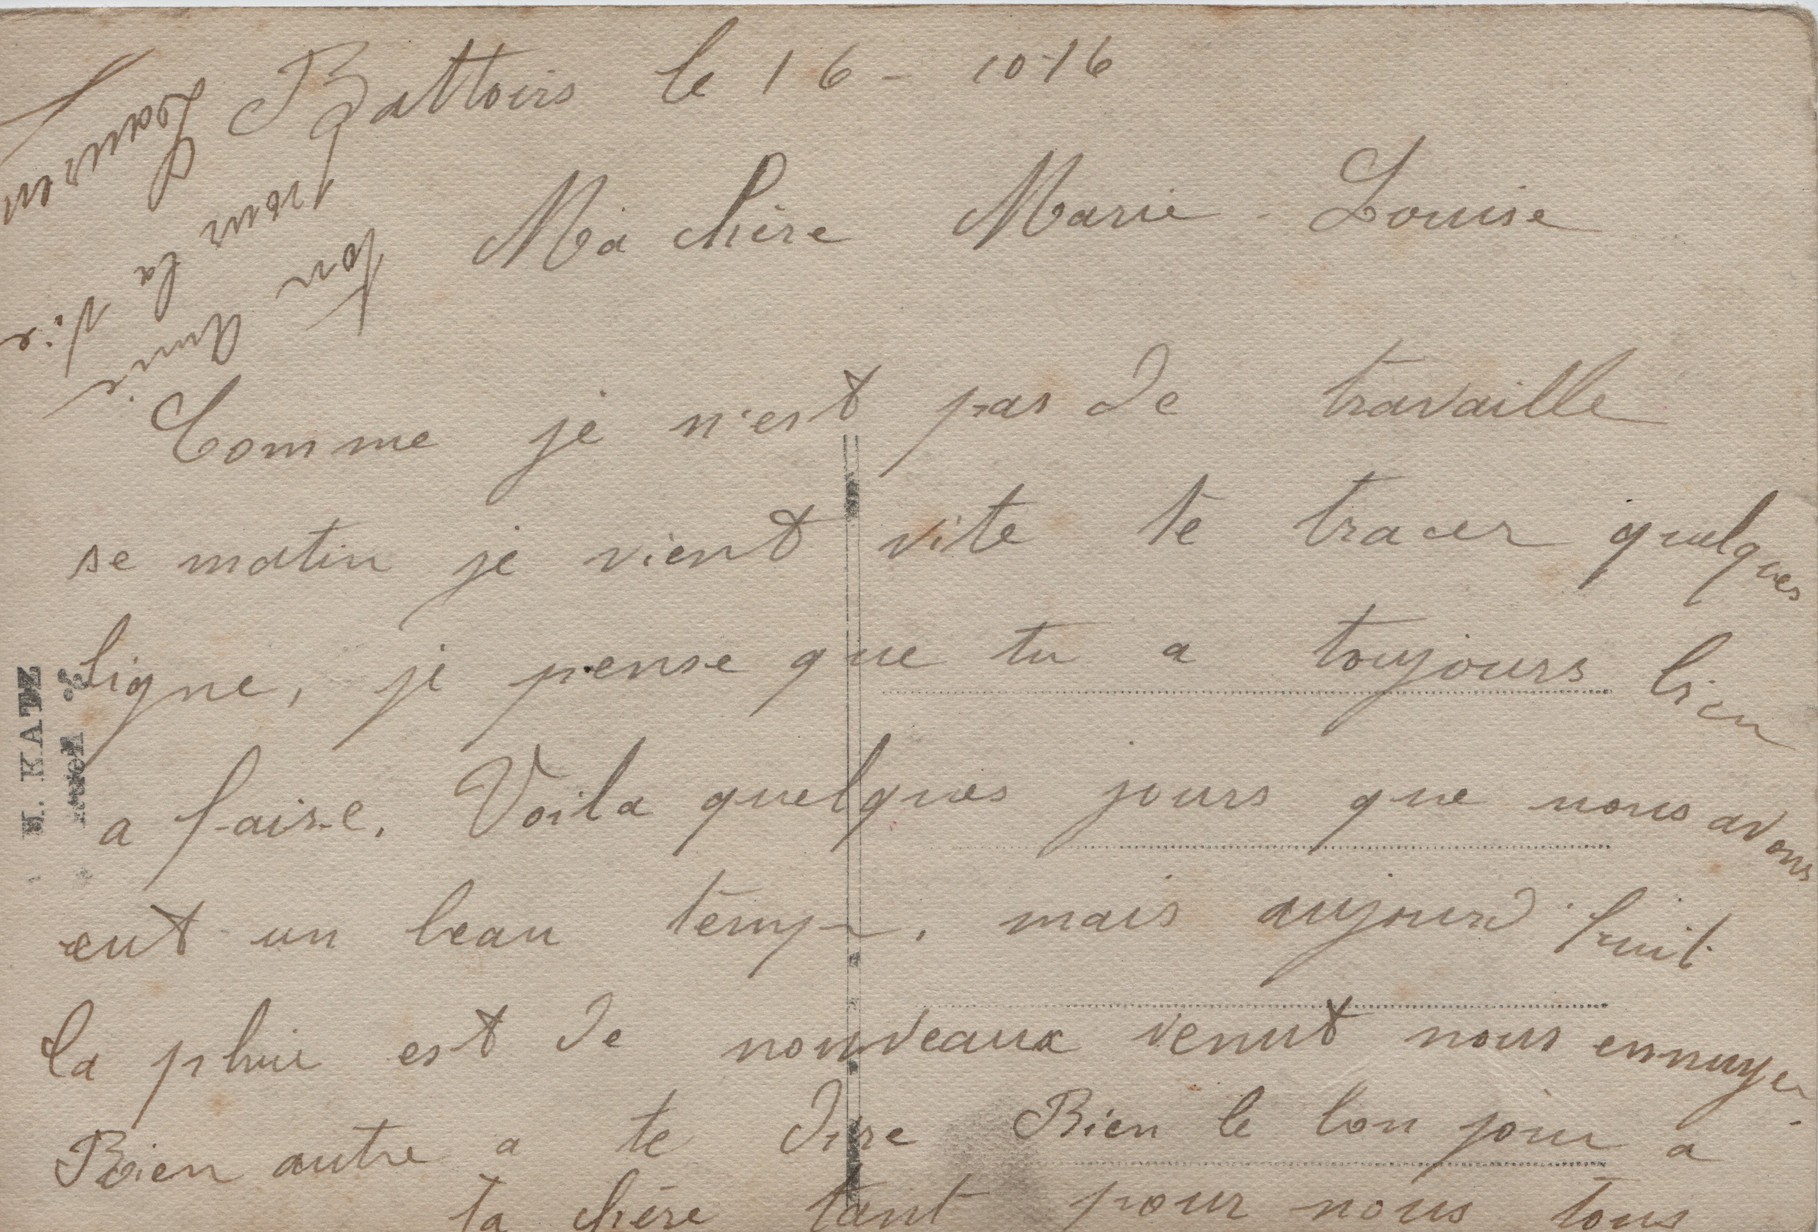 Battoirs le 16 - 10-16
Ma chère Marie-Louise
Comme je n'est pas de travaille
se matin je vient vite te tracer quelques
ligne, je pense que tu a toujours bien
a faire. Voila quelques jours que nous avons
eut un beau temp, mais aujourd'huit
la pluie est de nouveaux venut nous ennuyer.
Rien autre a te dire Bien le bon jour a
ta chère tant pour nous tous
ton Amie
pour la Vie
Lauren
M. KATZ